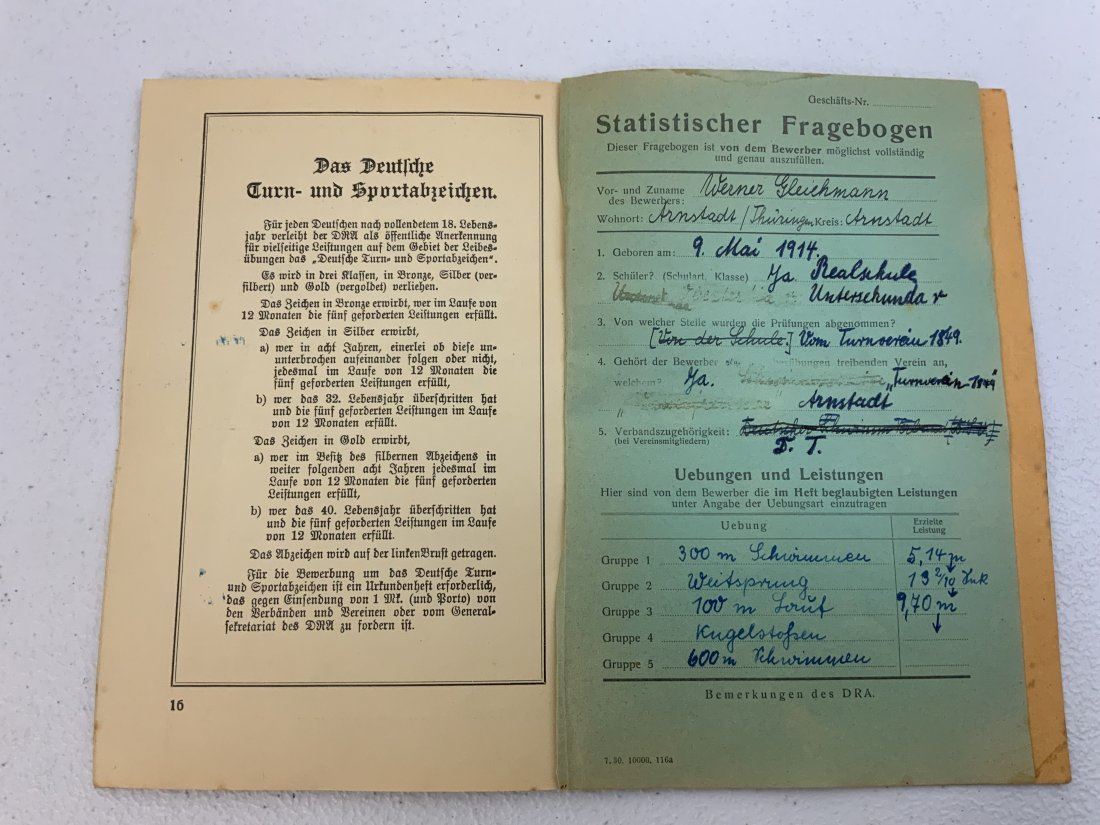 Das Deutsche
Turn- und Sportabzeichen.
Für jeden Deutschen nach vollendetem 18. Lebens-
jahr verleiht der DRA als öffentliche Anerkennung
für vielseitige Leistungen auf dem Gebiet der Leibes-
übungen das „Deutsche Turn- und Sportabzeichen“.
Es wird in drei Klassen, in Bronze, Silber (ver-
silbert) und Gold (vergoldet) verliehen.
Das Zeichen in Bronze erwirbt, wer im Laufe von
12 Monaten die fünf geforderten Leistungen erfüllt.
Das Zeichen in Silber erwirbt,
a) wer in acht Jahren, einerlei ob diese un-
unterbrochen aufeinander folgen oder nicht,
jedesmal im Laufe von 12 Monaten die
fünf geforderten Leistungen erfüllt,
b) wer das 32. Lebensjahr überschritten hat
und die fünf geforderten Leistungen im Laufe
von 12 Monaten erfüllt.
Das Zeichen in Gold erwirbt,
a) wer im Besitz des silbernen Abzeichens in
weiter folgenden acht Jahren jedesmal im
Laufe von 12 Monaten die fünf geforderten
Leistungen erfüllt,
b) wer das 40. Lebensjahr überschritten hat
und die fünf geforderten Leistungen im Laufe
von 12 Monaten erfüllt.
Das Abzeichen wird auf der linken Brust getragen.
Für die Bewerbung um das Deutsche Turn-
und Sportabzeichen ist ein Urkundenheft erforderlich,
das gegen Einsendung von 1 Mk. (und Porto) von
den Verbänden und Vereinen oder vom General-
sekretariat des DRA zu fordern ist.
16
Geschäfts-Nr.
Statistischer Fragebogen
Dieser Fragebogen ist von dem Bewerber möglichst vollständig
und genau auszufüllen.
Vor- und Zuname Werner Gleichmann
des Bewerbers:
Wohnort: Arnstadt / Thüringen Kreis: Arnstadt
1. Geboren am: 9. Mai 1914.
2. Schüler? (Schulart, Klasse) Ja Realschule
Untersekunda r
3. Von welcher Stelle wurden die Prüfungen abgenommen?
[Von der Schule.] Vom Turnverein 1849.
4. Gehört der Bewerber treibenden Verein an,
welchem? Ja. „Turnverein 1849“
Arnstadt
5. Verbandszugehörigkeit:
(bei Vereinsmitgliedern) D. T.
Uebungen und Leistungen
Hier sind von dem Bewerber die im Heft beglaubigten Leistungen
unter Angabe der Uebungsart einzutragen
Uebung Erzielte Leistung
Gruppe 1 300 m Schwimmen 5,14 m
Gruppe 2 Weitsprung 13 2/10 Sek
Gruppe 3 100 m Lauf 9,70 m
Gruppe 4 Kugelstoßen
Gruppe 5 600 m Schwimmen
Bemerkungen des DRA.
7. 30. 10000. 116a